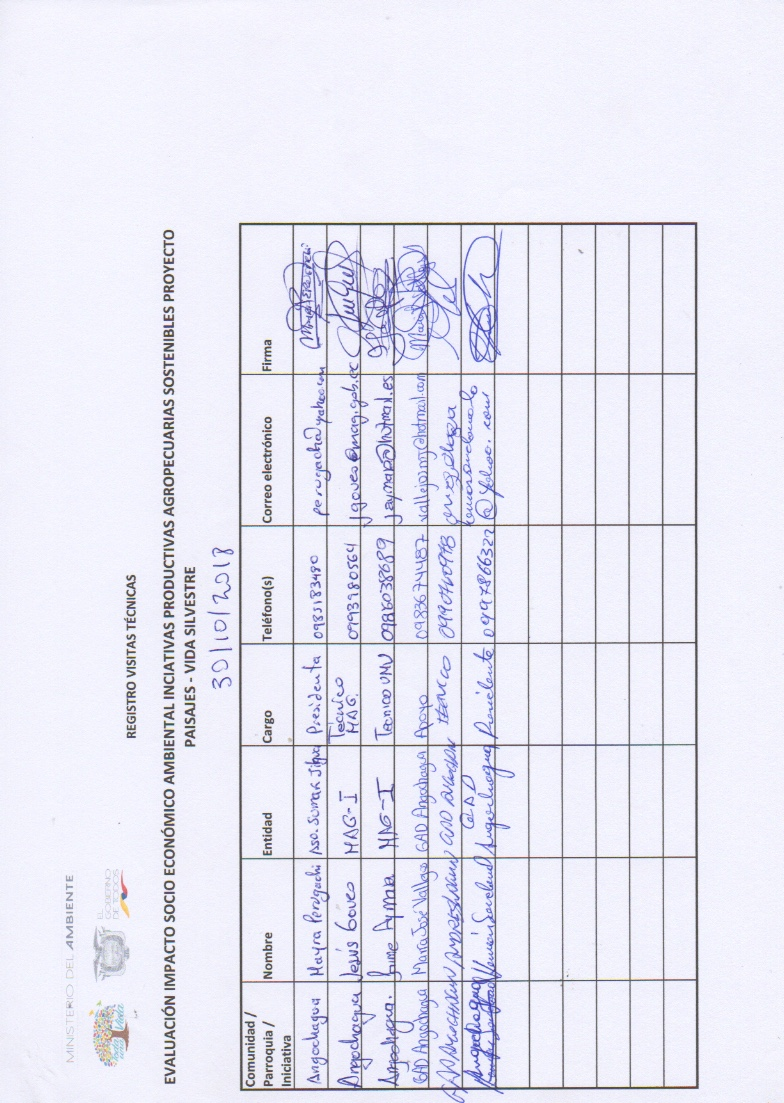 MINISTERIO DEL AMBIENTE
EL GOBIERNO DE TODOS
REGISTRO VISITAS TÉCNICAS
EVALUACIÓN IMPACTO SOCIO ECONÓMICO AMBIENTAL INCIATIVAS PRODUCTIVAS AGROPECUARIAS SOSTENIBLES PROYECTO
PAISAJES - VIDA SILVESTRE
30/10/2018
Comunidad / Parroquia / Iniciativa Nombre Entidad Cargo Teléfono(s) Correo electrónico Firma
Angochagua Mayra Perugachi Aso. Sumak Jipua Presidenta 0985183480
Angochagua Jesús Goveo MAG-I Técnico MAG. 0993980564 jgoveo@mag.gob.ec
Angochagua. Jaime Aymara MAG-I Tecnico 0986038689 jaymara@hotmail.es
GAD Angochagua María José Vallejo GAD Angochagua Apoyo 0983674487 vallejo.mj@hotmail.com
GAD Angochagua GAD Angochagua Tecnico
Angochagua GAD Angochagua Presidente 0997866322 @yahoo.com